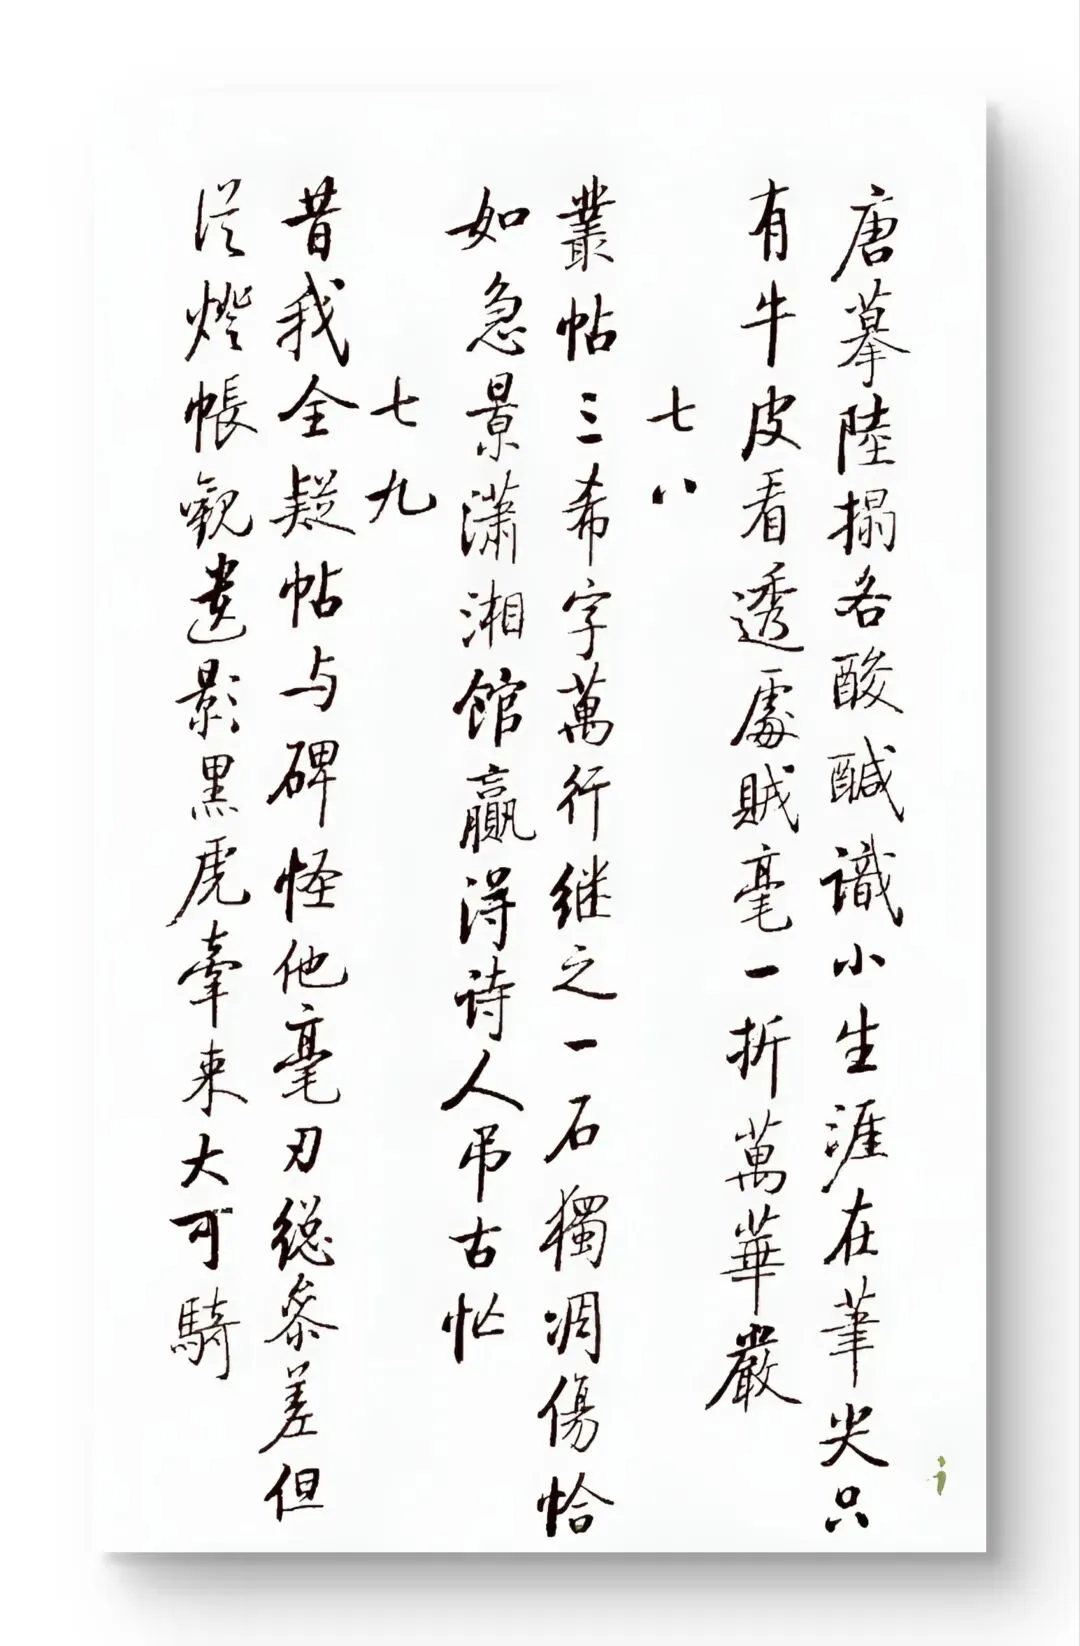 唐摹陸搨各酸醎識小生涯在筆尖只
有牛皮看透處賊毫一折萬華嚴
七八
叢帖三希字萬行继之一石獨凋傷恰
如急景潇湘館贏得诗人吊古忙
七九
昔我全疑帖与碑怪他毫刃総參差但
從燈帳觀遺影黑虎牽来大可騎